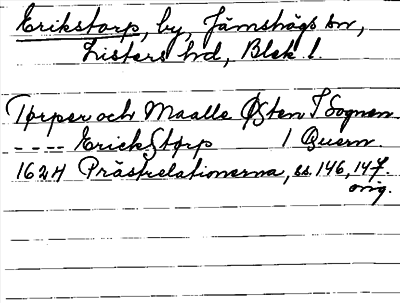 Erikstorp, by, Jämshögs sn,
Listers hd, Blek l.
Torper och Maalle Østen I Sognen
---- ErickStorp 1 Quern
1624 Prästrelationerna, ss. 146, 147.
orig.